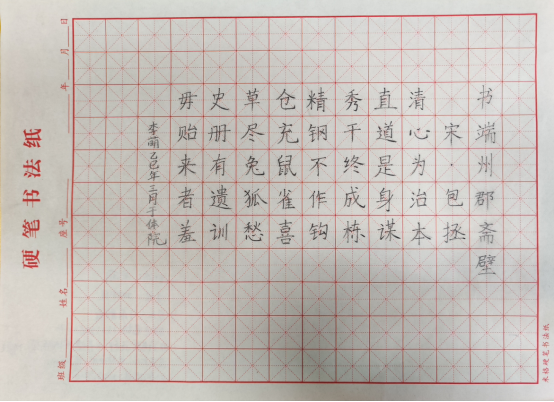 书端州郡斋壁
宋·包拯
清心为治本
直道是身谋
秀干终成栋
精钢不作钩
仓充鼠雀喜
草尽兔狐愁
史册有遗训
毋贻来者羞
李萌乙巳年三月于体院
硬笔书法纸
班级 姓名 座号 年 月 日
米格硬笔书法纸